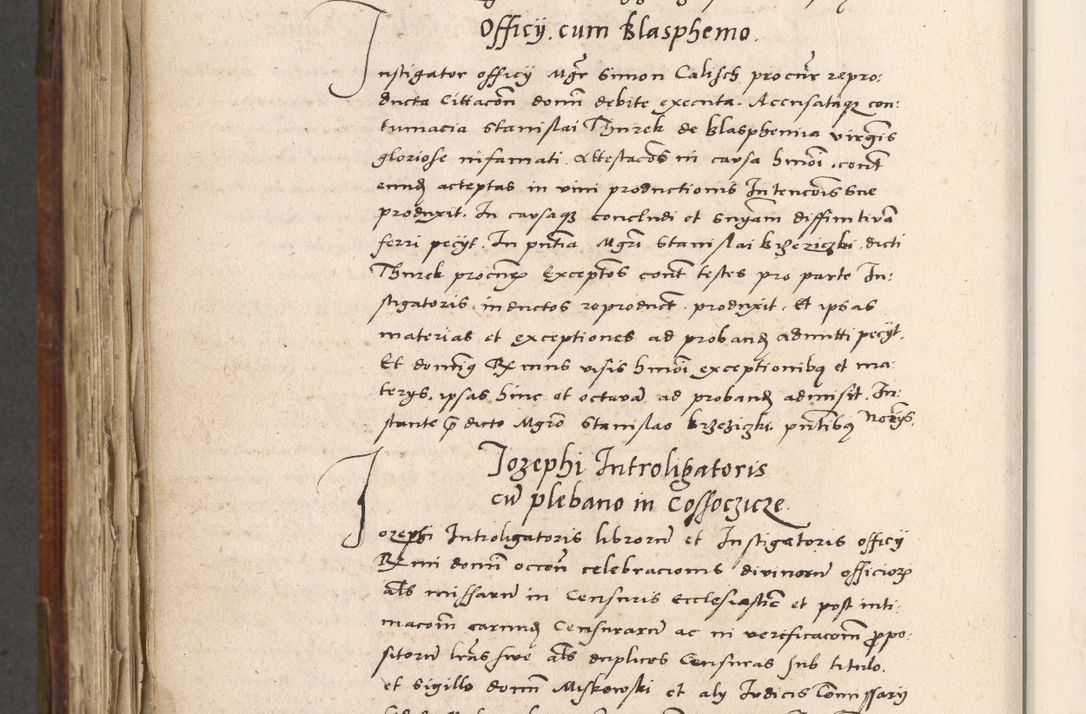 Officij cum Blasphemo.
Instigator officij Mgr Simon Calisch procur repro:
ducta Cittacōn domī debite executa. Accusataqз con:
tumacia Stanislai Thurek de blasphemia virgīs
gloriose infamati. Attestacōs in causa hmōi cont
eundē acceptas in vim productionis Intencōis sue
produxit. In causaqз concludi et snīam diffinitivā
ferri pecijt. In pñtia Mgrī Stanislai Brzeziczki dicti
Thurek procurꝭ Exceptōes cont testes pro parte In:
stigatoris inductos reproduct produxit. Et ipsas
materias et exceptiones ad probandū admitti pecijt.
Et domīqз Rx emus visis hmōi exceptionibqз et ma:
terijs, ipsas hinc et octavā ad probandū admisit. In:
stante q̄ dicto Mgrō Stanislao brzeziczki pñtibqз Norijs.
Jozephi Introligatoris
cū plebano in Cossoczicze.
Jozephi Introligatoris librorū et Instigatoris officij
Rx mi domī occōn celebracionis divinorū officiorꝭ
als missarū in Censuris Ecclesiastic et post inti:
macōm earundē Censurarū ac in verificacōm ꝓpo:
sitorū lrās sive als duplices Censuras sub titulo
et sigillo domī Miskowski et alij Judicis Comissarij